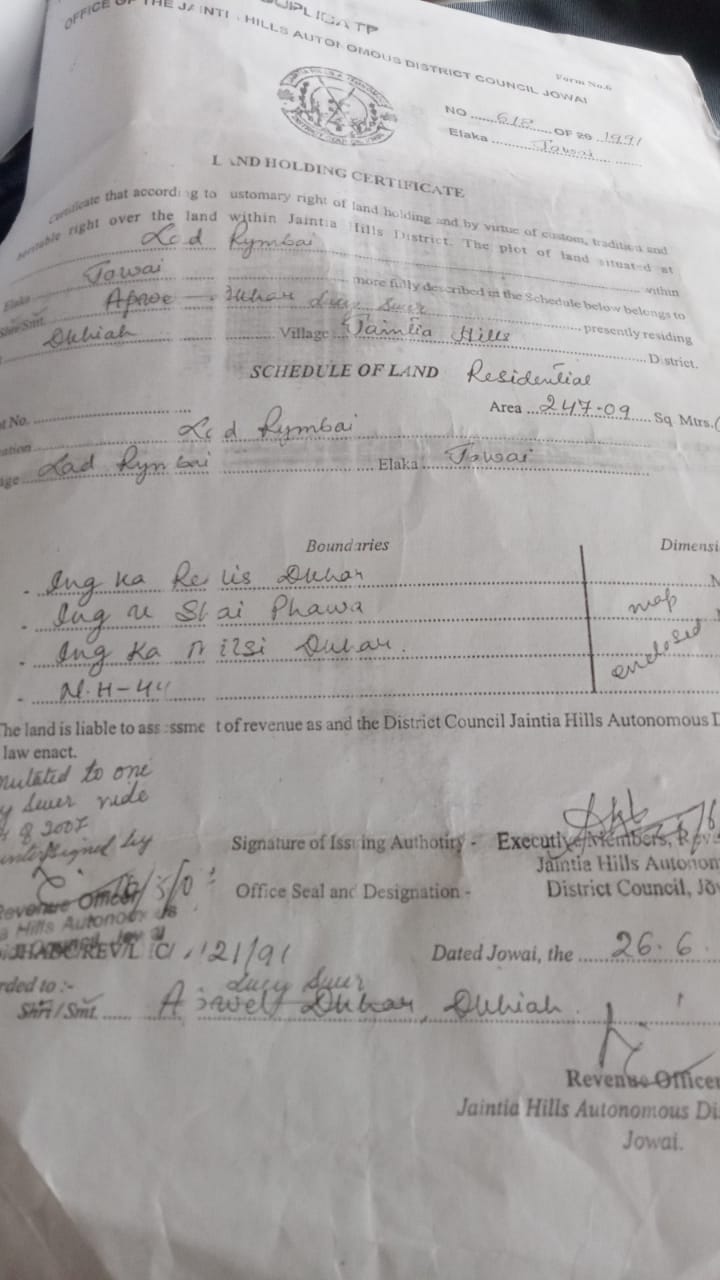 DUPLICATE
OFFICE OF THE JAINTI HILLS AUTONOMOUS DISTRICT COUNCIL JOWAI
Form No.6
NO ...... 618 ...... OF 20 .. 1991
Elaka ........ Jowai ........
LAND HOLDING CERTIFICATE
Certificate that according to ustomary right of land holding and by virtue of custom, tradition and
heritable right over the land within Jaintia Hills District. The plot of land situated at
Lad Rymbai within
Elaka Jowai more fully described in the Schedule below belongs to
Shri/Smt. Dkhar Lucy Suer presently residing
Dkhiah Village Jaintia Hills District.
SCHEDULE OF LAND Residential
t No. Area ... 247-09 .... Sq. Mtrs.(
ation Lad Rymbai
age Lad Rymbai Elaka Jowai
Boundaries Dimensi
. Ing ka Re lis Dkhar N
. Ing u Shai Phawa map
. Ing Ka Dkhar. enclosed
- N.H-44
The land is liable to ass ssme t of revenue as and the District Council Jaintia Hills Autonomous D
law enact.
mutated to one
y Suer vide
2007
untersigned by
Signature of Issuing Authotiry - Executive Members, Reve
Jaintia Hills Autonom
Office Seal and Designation - District Council, Jow
Revenue Officer
a Hills Autonomous
JHADC/REV/L C/ 121/91 Dated Jowai, the ..... 26.6.
rded to :-
Lucy Suer
Shri/Smt. Dkhar, Dkhiah.
Revenue Officer
Jaintia Hills Autonomous Dis
Jowai.